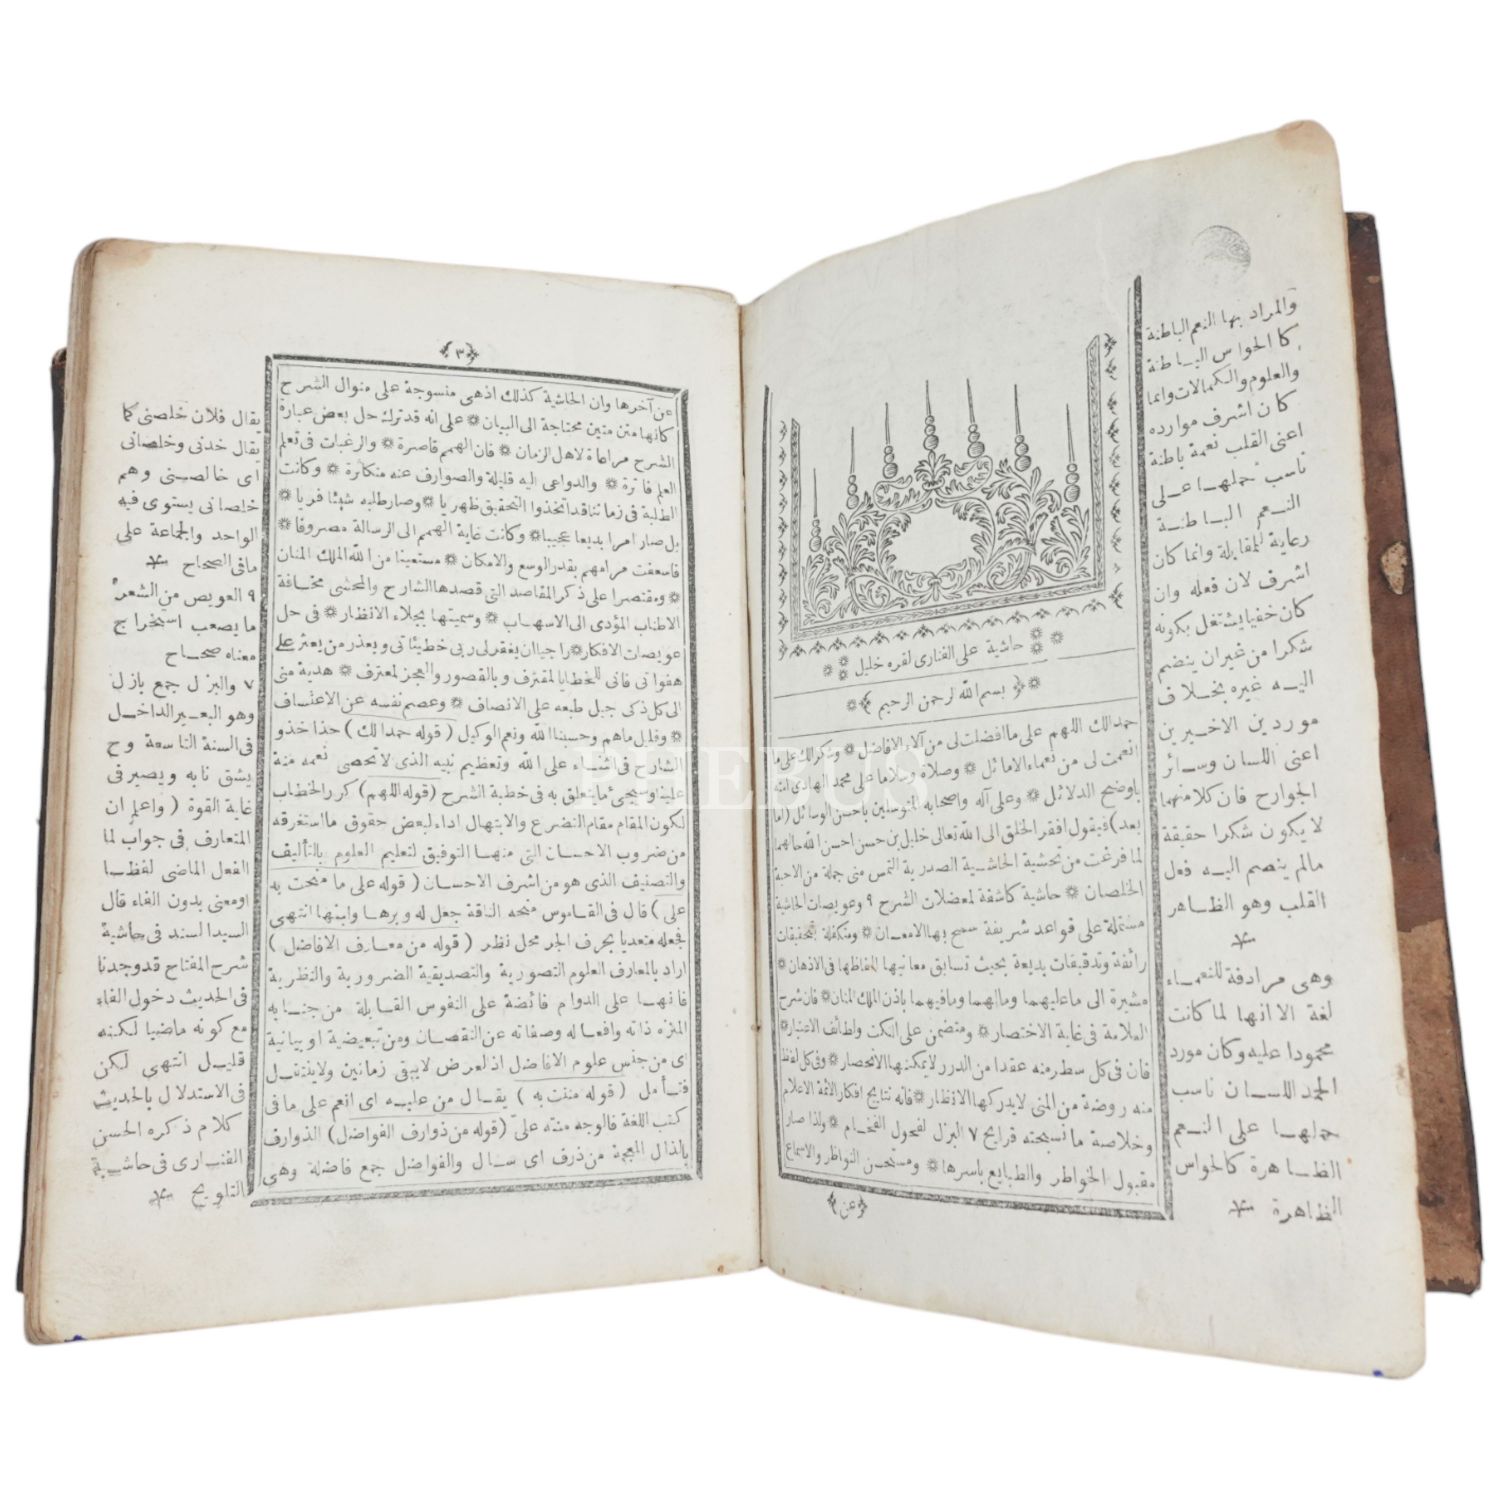 حاشية على الفنارى لقره خليل
بسم الله الرحمن الرحيم
حمدا لك اللهم على ما افضلت لى من آلاء الافاضل * وشكرا لك على ما
انعمت لى من نعماء الاماثل * وصلاة وسلاما على محمد الهادى امته
باوضح الدلائل * وعلى آله واصحابه المتوسلين باحسن الوسائل (اما
بعد) فيقول افقر الخلق الى الله تعالى خليل بن حسن احسن الله حالهما
لما فرغت من تحشية الحاشية الصدرية التمس منى جملة من الاحبة
الخلصان * حاشية كاشفة لمعضلات الشرح ٩ وعويصات الحاشية
مشتملة على قواعد شريفة سمح بها الامعان * ومتكفلة بتحقيقات
رائقة وتدقيقات بديعة بحيث تسابق معانيها الفاظها فى الاذهان *
مشيرة الى ما عليهما وما لهما وما فيهما باذن الملك المنان * فان شرح
العلامة فى غاية الاختصار * ومتضمن على النكت ولطائف الاعتبار *
فان فى كل سطر منه عقدا من الدرر لا يمكنها الانحصار * وفى كل لفظ
منه روضة من المنى لا يدركها الانظار * فانه نتايج افكار الائمة الاعلام
وخلاصة ما نسجته قرايح ٧ البزل لفحول الفخام * ولذا صار
مقبول الخواطر والطبايع باسرها * ومستحسن النواظر والاسماع
عن
والمراد بها النعم الباطنة
كالحواس الباطنة
والعلوم والكمالات وانما
كان اشرف موارده
اعنى القلب نعمة باطنة
ناسب حملها على
النعم الباطنة
رعاية للمقابلة وانما كان
اشرف لان فعله وان
كان خفيا يستقل بكونه
شكرا من غير ان ينضم
اليه غيره بخلاف
موردين الاخيرين
اعنى اللسان وسائر
الجوارح فان كلا منهما
لا يكون شكرا حقيقة
مالم ينضم اليه فعل
القلب وهو الظاهر
وهى مرادفة للنعماء
لغة الا انها لما كانت
محمودا عليه وكان مورد
الحمد اللسان ناسب
حملها على النعم
الظاهرة كالحواس
الظاهرة
٣
عن آخرها وان الحاشية كذلك اذهى منسوجة على منوال الشرح
كانها متن متين محتاجة الى البيان * على انه قد ترك حل بعض عبارة
الشرح مراعاة لاهل الزمان * فان الهمم قاصرة * والرغبات فى تعلم
العلم فاترة * والدواعى اليه قليلة والصوارف عنه متكاثرة * وكانت
الطلبة فى زماننا قد اتخذوا التحقيق ظهريا * وصار طلبه شيئا فريا *
بل صار امرا بديعا عجيبا * وكانت غاية الهمم الى الرسالة مصروفا *
فاسعفت مرامهم بقدر الوسع والامكان * مستعينا من الله الملك المنان
* ومقتصرا على ذكر المقاصد التى قصدها الشارح والمحشى مخافة
الاطناب المؤدى الى الاسهاب * وسميتها بجلاء الانظار * فى حل
عويصات الافكار * راجيا ان يغفر لى ربى خطيئاتى ويعذر من يعثر على
هفواتى فانى للخطايا لمقترف وبالقصور والعجز لمعترف * هدية منى
الى كل ذكى جبل طبعه على الانصاف * وعصم نفسه عن الاعتساف
* وقليل ماهم وحسبنا الله ونعم الوكيل (قوله حمدا لك) حذا حذو
الشارح فى الثناء على الله وتعظيم نبيه الذى لا تحصى نعمه منة
علينا وسيجئ ما يتعلق به فى خطبة الشرح (قوله اللهم) كرر الخطاب
لكون المقام مقام التضرع والابتهال اداء لبعض حقوق ما استغرقه
من ضروب الاحسان التى منها التوفيق لتعليم العلوم بالتأليف
والتصنيف الذى هو من اشرف الاحسان (قوله على ما منحت به
على) قال فى القاموس منحه الناقة جعل له وبرها ولبنها انتهى
فجعله متعديا بحرف الجر محل نظر (قوله من معارف الافاضل)
اراد بالمعارف العلوم التصورية والتصديقية الضرورية والنظرية
فانها على الدوام فائضة على النفوس القابلة من جنابه
المنزه ذاته وافعاله وصفاته عن النقصان ومن تبعيضية او بيانية
اى من جنس علوم الافاضل اذ العرض لا يبقى زمانين ولا ينتقل
فتأمل (قوله مننت به) يقال من عليه اى انعم على ما فى
كتب اللغة فالوجه مننه علىّ (قوله من ذوارف الفواضل) الذوارف
بالذال المعجمة من ذرف اى سال والفواضل جمع فاضلة وهى
يقال فلان خلصنى كما
يقال خدنى وخلصانى
اى خالصنى وهم
خلصانى يستوى فيه
الواحد والجماعة على
مافى الصحاح
٩ العويص من الشعر
ما يصعب استخراج
معناه صحاح
٧ والبزل جمع بازل
وهو البعير الداخل
فى السنة التاسعة وح
يشق نابه ويصير فى
غاية القوة (واعلم ان
المتعارف فى جواب لما
الفعل الماضى لفظا
او معنى بدون الفاء قال
السيد السند فى حاشية
شرح المفتاح قد وجدنا
فى الحديث دخول الفاء
مع كونه ماضيا لكنه
قليل انتهى لكن
فى الاستدلال بالحديث
كلام ذكره الحسن
الفنارى فى حاشية
التلويح
PHEBUS